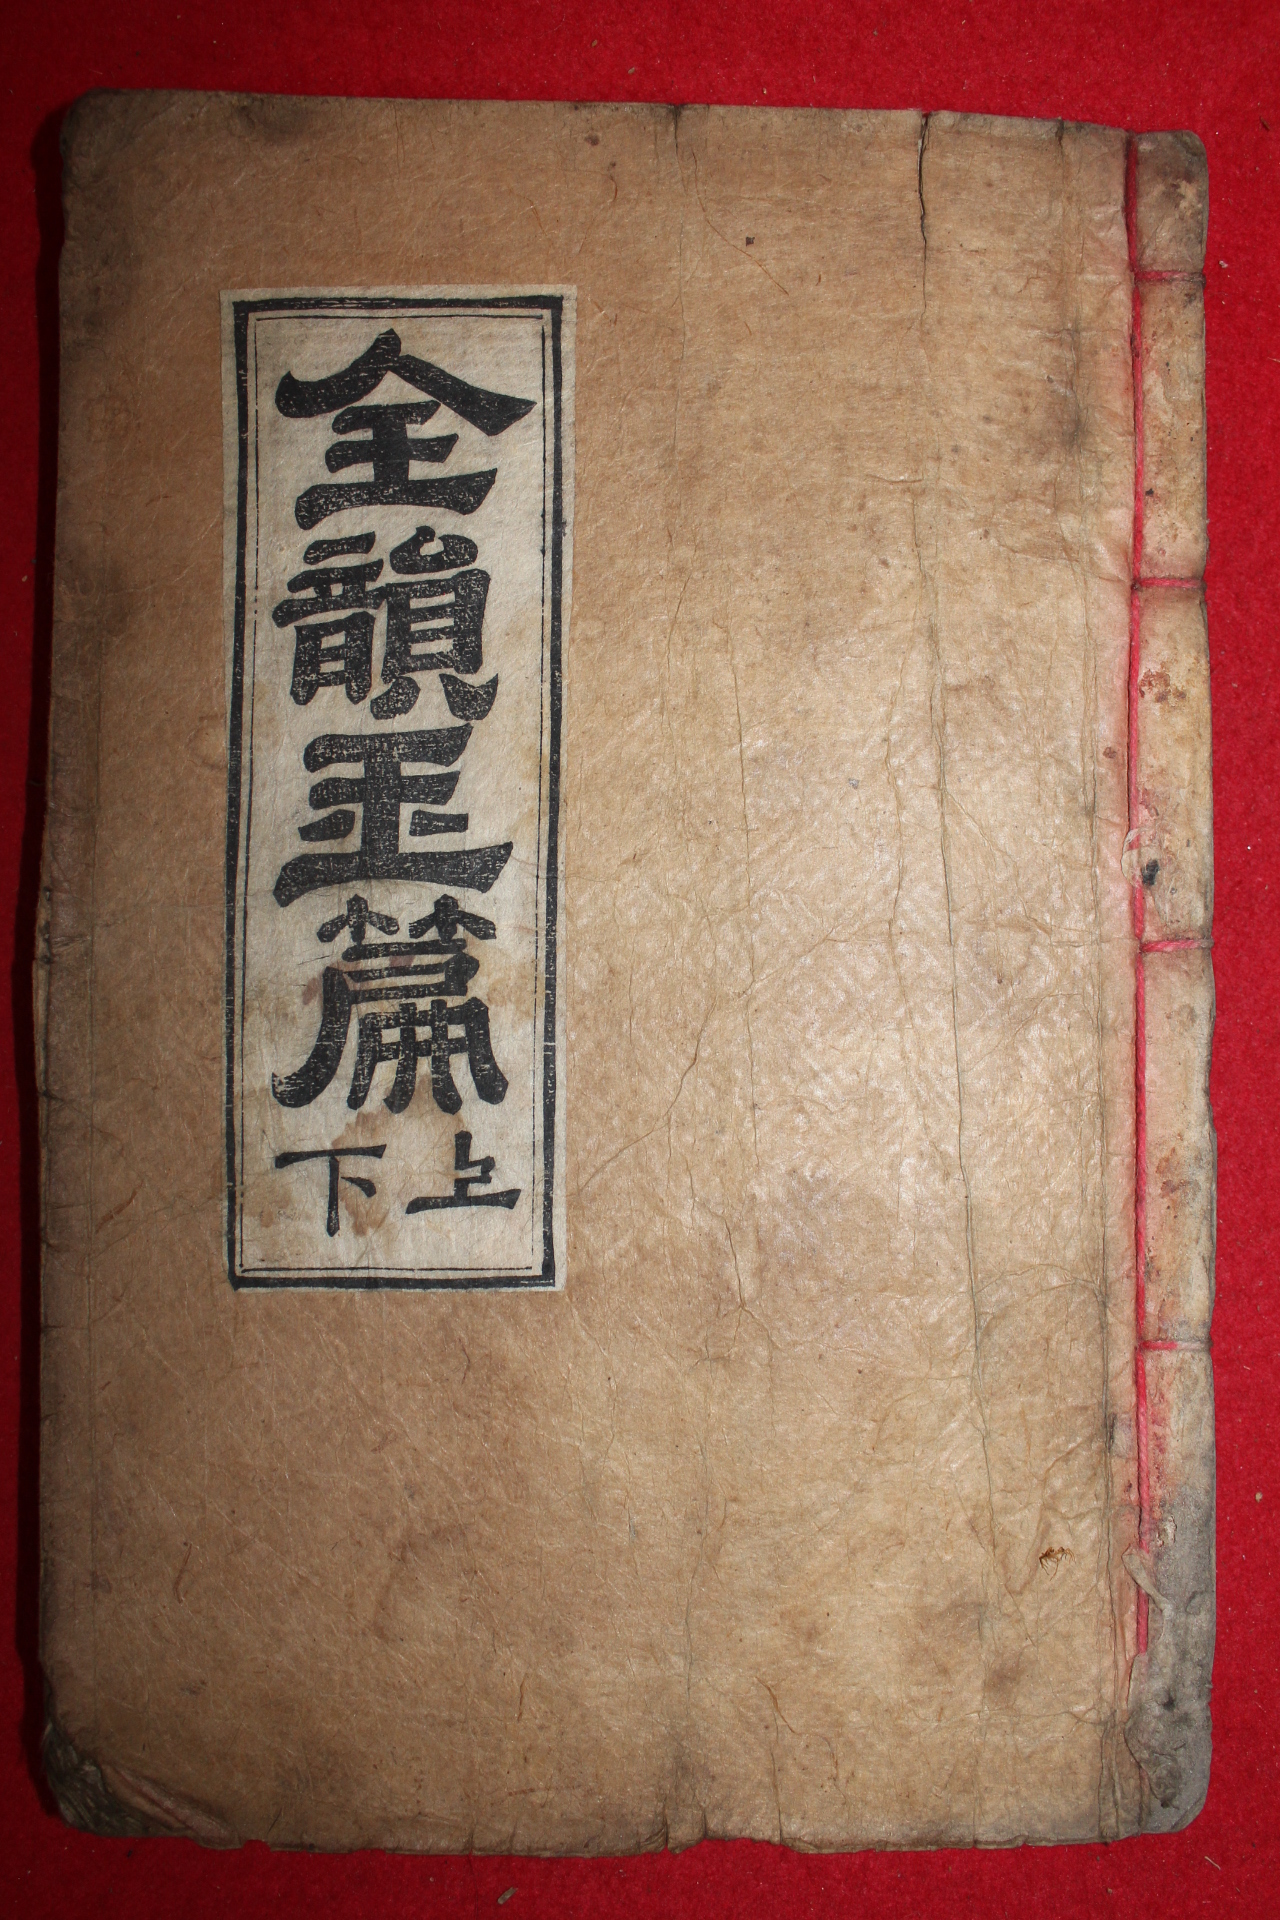 全韻玉篇
上下